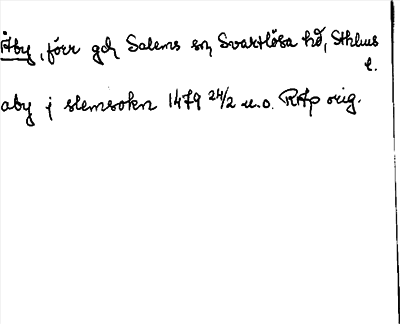 Åby, förr gd, Salems sn, Svartlösa hd, Sthlms
l.
aby j slemsokn 1479 24/2 u.o. RAp orig.